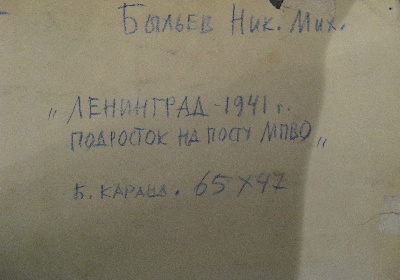 Быльев Ник. Мих.
"ЛЕНИНГРАД - 1941 г.
ПОДРОСТОК НА ПОСТУ МПВО"
Б. КАРАНД. 65 x 47